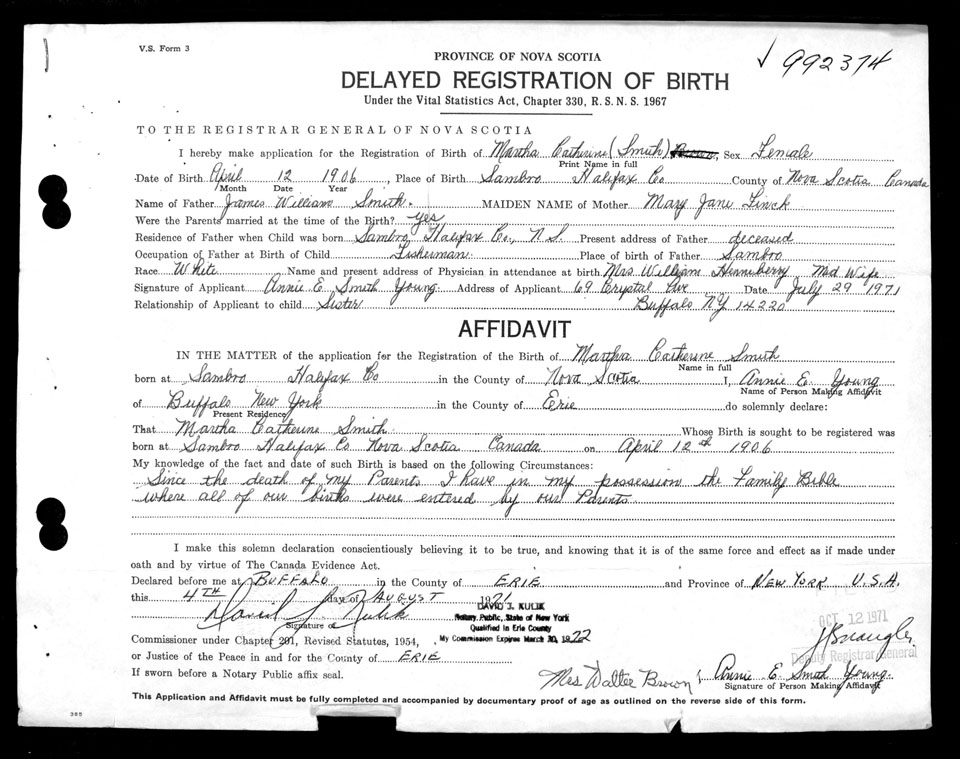 V.S. Form 3
PROVINCE OF NOVA SCOTIA
992374
DELAYED REGISTRATION OF BIRTH
Under the Vital Statistics Act, Chapter 330, R.S.N.S. 1967
TO THE REGISTRAR GENERAL OF NOVA SCOTIA
I hereby make application for the Registration of Birth of Martha Catherine (Smith), Sex Female
Print Name in full
Date of Birth April 12 1906, Place of Birth Sambro Halifax Co County of Nova Scotia Canada
Month Date Year
Name of Father James William Smith. MAIDEN NAME of Mother Mary Jane Finck
Were the Parents married at the time of the Birth? yes
Residence of Father when Child was born Sambro, Halifax Co., N.S. Present address of Father deceased
Occupation of Father at Birth of Child Fisherman Place of birth of Father Sambro
Race White Name and present address of Physician in attendance at birth Mrs William Henneberry Mid Wife
Signature of Applicant Annie E. Smith Young Address of Applicant 69 Crystal Ave Date July 29 1971
Relationship of Applicant to child Sister Buffalo NY 14220
AFFIDAVIT
IN THE MATTER of the application for the Registration of the Birth of Martha Catherine Smith
Name in full
born at Sambro Halifax Co in the County of Nova Scotia I, Annie E. Young
Name of Person Making Affidavit
of Buffalo New York in the County of Erie do solemnly declare:
Present Residence
That Martha Catherine Smith Whose Birth is sought to be registered was
born at Sambro Halifax Co Nova Scotia Canada on April 12th 1906
My knowledge of the fact and date of such Birth is based on the following Circumstances:
Since the death of my Parents I have in my possession the Family Bible
where all of our births were entered by our Parents
I make this solemn declaration conscientiously believing it to be true, and knowing that it is of the same force and effect as if made under
oath and by virtue of The Canada Evidence Act.
Declared before me at BUFFALO in the County of ERIE and Province of NEW YORK U.S.A.
this 4TH day of AUGUST 1971
OCT 12 1971
David J. Kulik
DAVID J. KULIK
Notary Public, State of New York
Signature of
Qualified in Erie County
Commissioner under Chapter 201, Revised Statutes, 1954, My Commission Expires March 30, 1972
or Justice of the Peace in and for the County of ERIE
Deputy Registrar General
If sworn before a Notary Public affix seal.
Mrs Walter Brown
Annie E. Smith Young.
Signature of Person Making Affidavit
This Application and Affidavit must be fully completed and accompanied by documentary proof of age as outlined on the reverse side of this form.